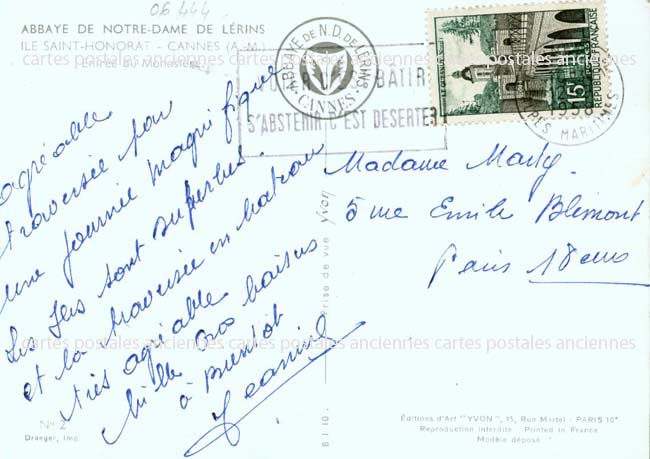 06 444
ABBAYE DE NOTRE-DAME DE LÉRINS
ILE SAINT-HONORAT - CANNES (A.-M.)
cartes postales anciennes cartes postales anciennes cartes postales
ABBAYE DE N.D. DE LÉRINS
CANNES
BATIR
S'ABSTENIR C'EST DESERTER
15F
POSTES
REPUBLIQUE FRANÇAISE
ALPES MARITIMES
agréable
traversée par
une journée magnifique
Les Iles sont superbes.
et la traversée en bateau
très agréable
Mille Gros baisers
à Bientôt
Jeannine
Madame Marly.
5 rue Emile Blémont
Paris 18ème
cartes postales anciennes cartes postales anciennes cartes postales anciennes
prise de vue yvon
B I 10.
N° 2
Draeger, Imp.
Éditions d'Art "YVON", 15, Rue Martel - PARIS 10e
Reproduction interdite Printed in France
Modèle déposé